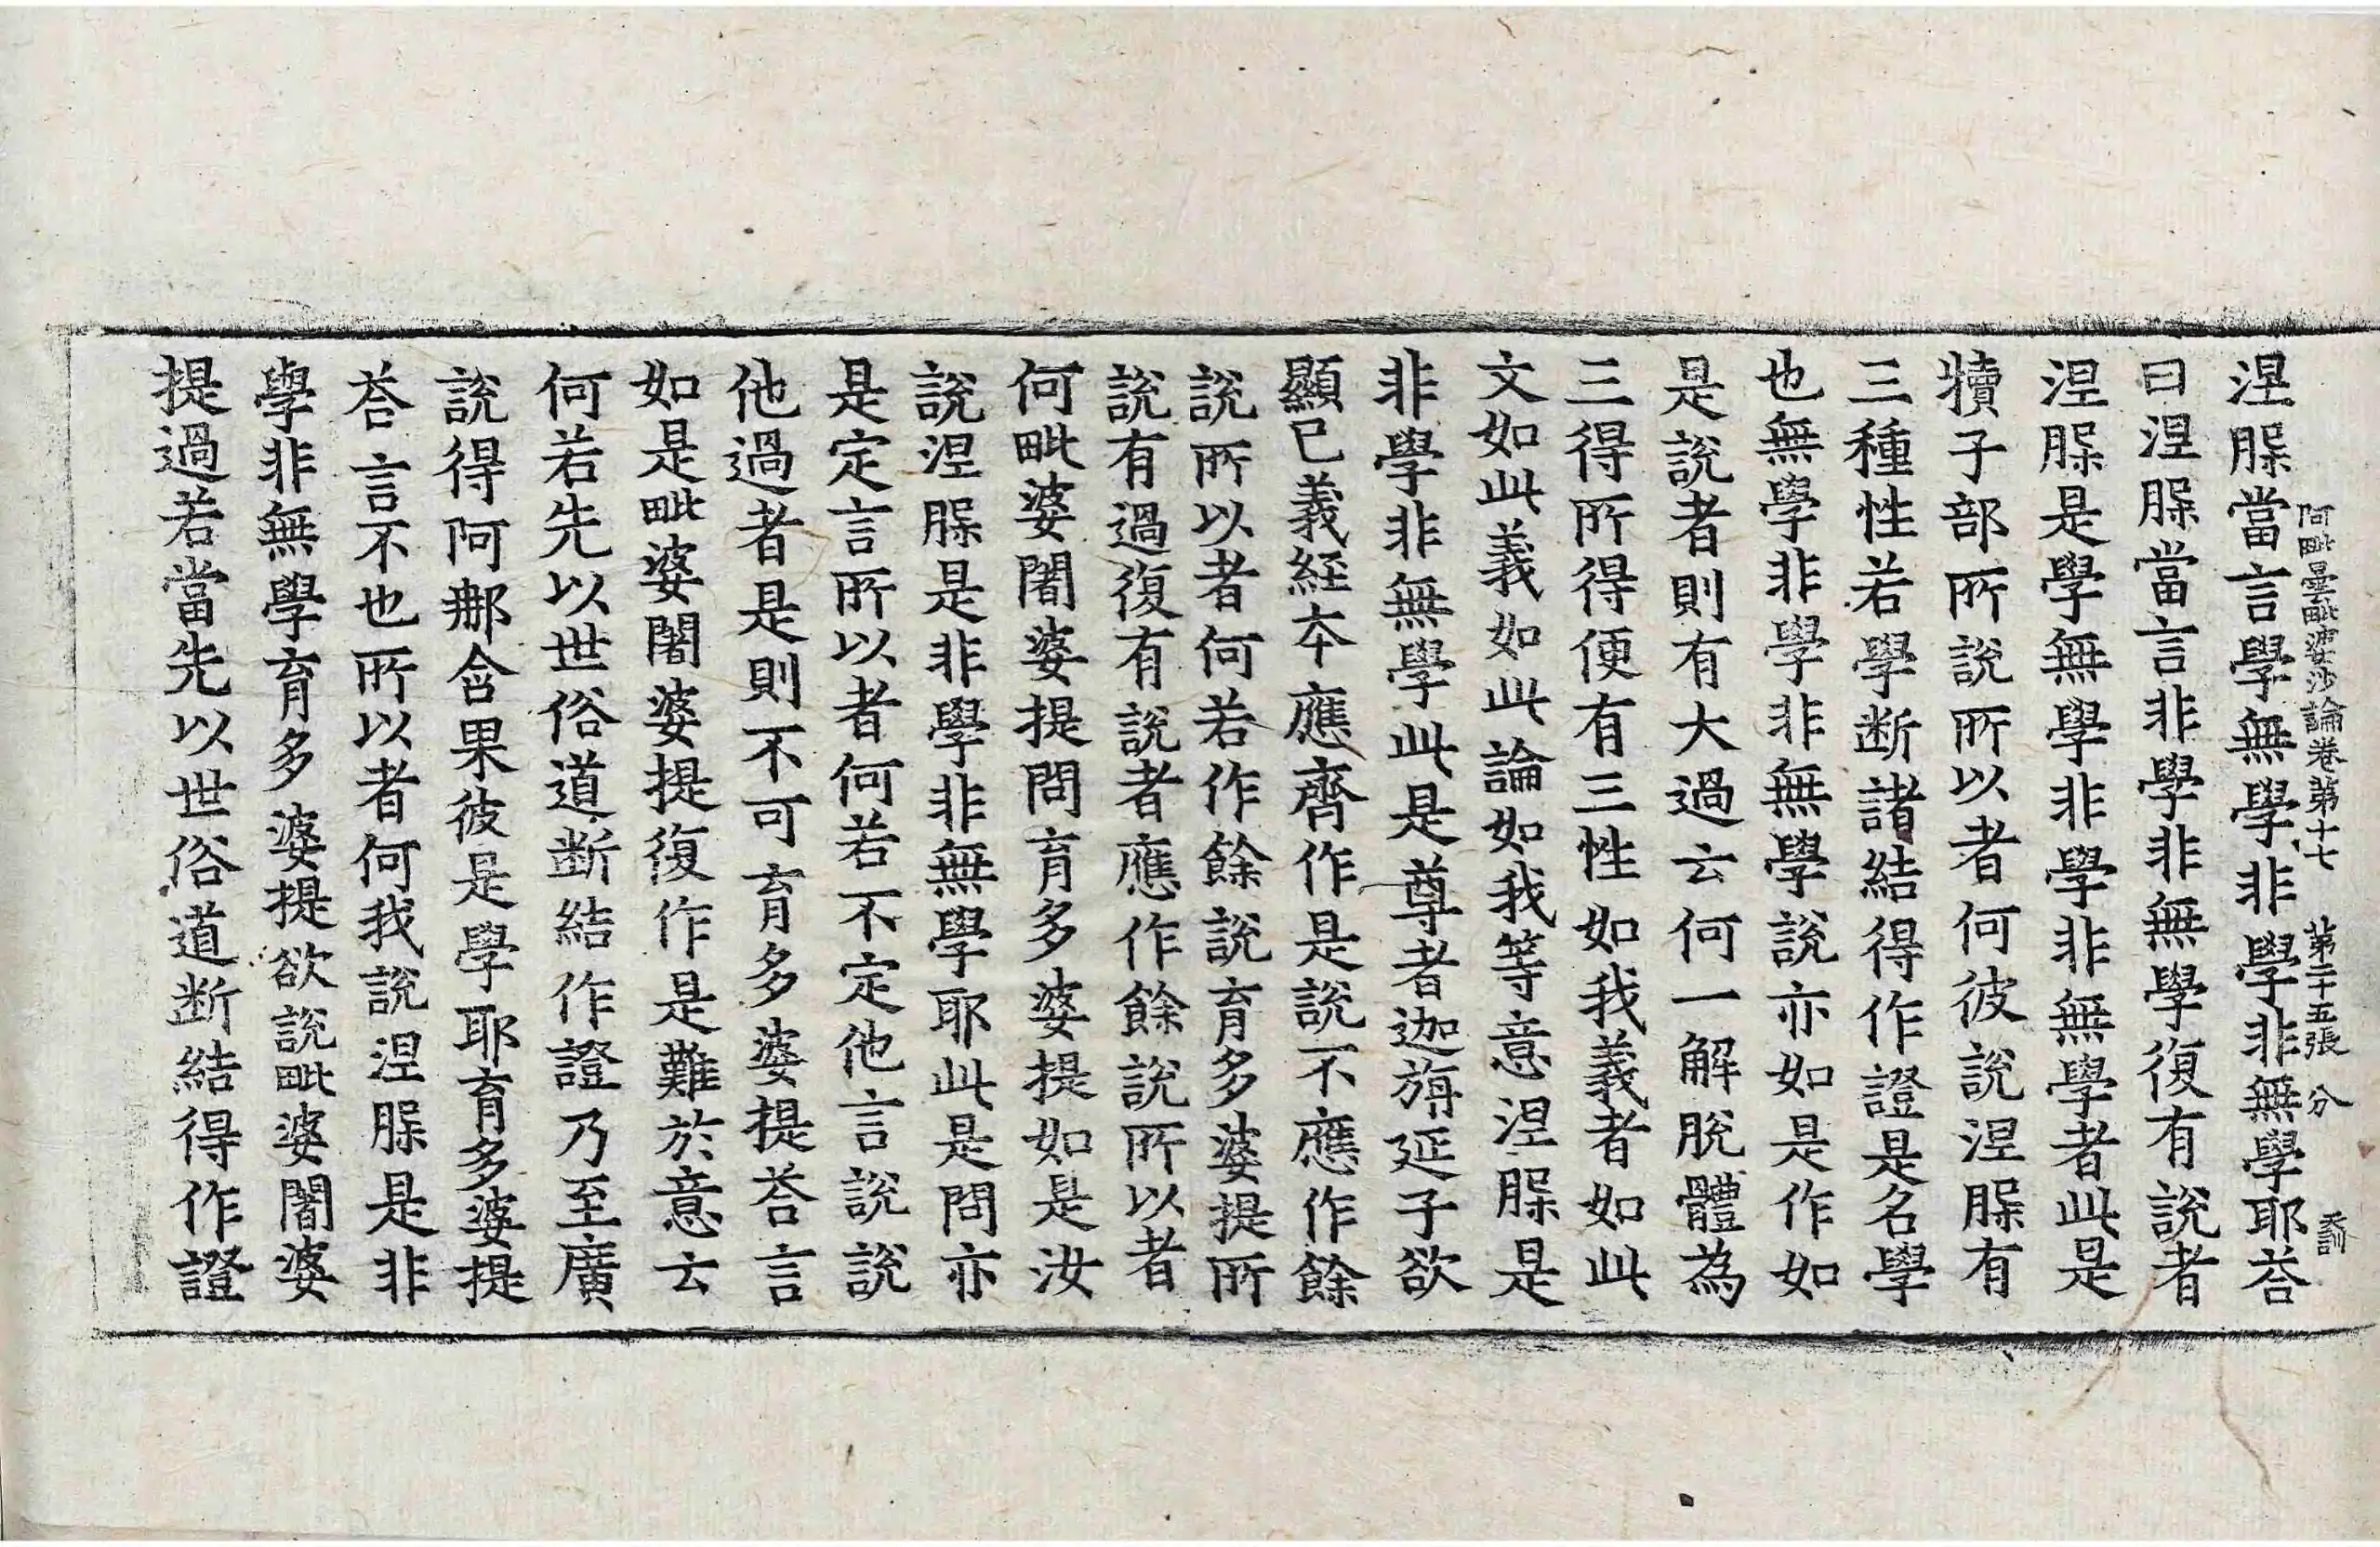 阿毗曇毗婆沙論卷第十七　第二十五張　分
涅𦙾當言學無學非學非無學耶荅
曰涅𦙾當言非學非無學復有說者
涅𦙾是學無學非學非無學者此是
犢子部所說所以者何彼說涅𦙾有
三種性若學断諸結得作證是名學
也無學非學非無學說亦如是作如
是說者則有大過云何一解脫體為
三得所得便有三性如我義者如此
文如此義如此論如我等意涅𦙾是
非學非無學此是尊者迦旃延子欲
顯已義経本應齊作是說不應作餘
說所以者何若作餘說育多婆提所
說有過復有說者應作餘說所以者
何毗婆闍婆提問育多婆提如是汝
說涅𦙾是非學非無學耶此是問亦
是定言所以者何若不定他言說說
他過者是則不可育多婆提荅言
如是毗婆闍婆提復作是難於意云
何若先以世俗道断結作證乃至廣
說得阿那含果彼是學耶育多婆提
荅言不也所以者何我說涅𦙾是非
學非無學育多婆提欲說毗婆闍婆
提過若當先以世俗道断結得作證